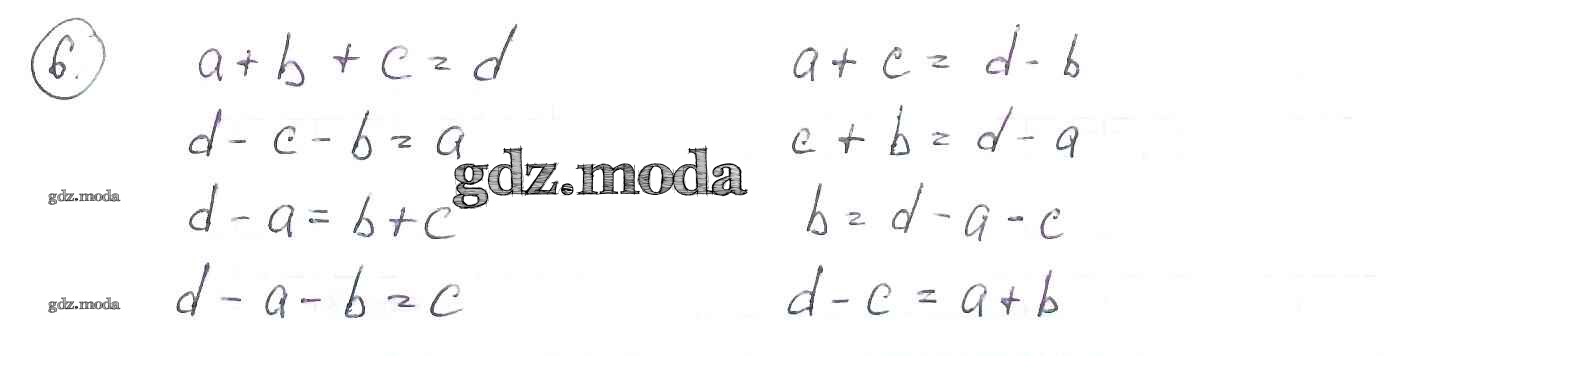 6. a + b + c = d a + c = d - b
d - c - b = a c + b = d - a
gdz.moda
gdz.moda d - a = b + c b = d - a - c
gdz.moda d - a - b = c d - c = a + b